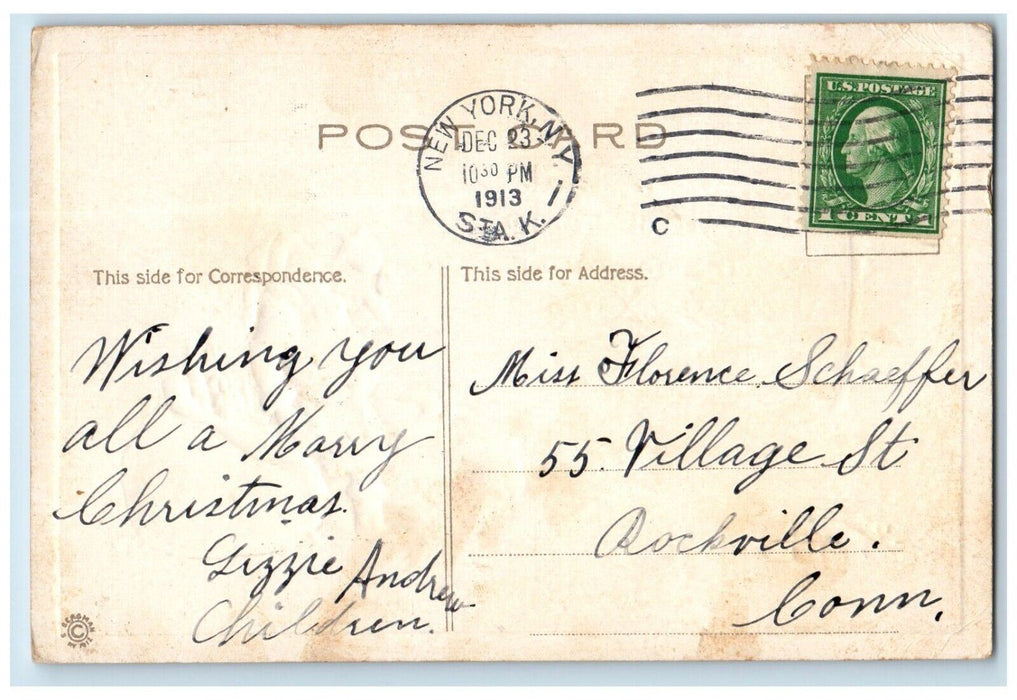 POST CARD
NEW YORK, N.Y.
DEC 23
10 30 PM
1913
STA. K.
1
C
U.S. POSTAGE
1 CENT 1
This side for Correspondence.
This side for Address.
Wishing you
all a Marry
Christmas.
Lizzie Andrew
Children.
Miss Florence Schaeffer
55. Village St
Rockville.
Conn.
S. BERGMAN
©